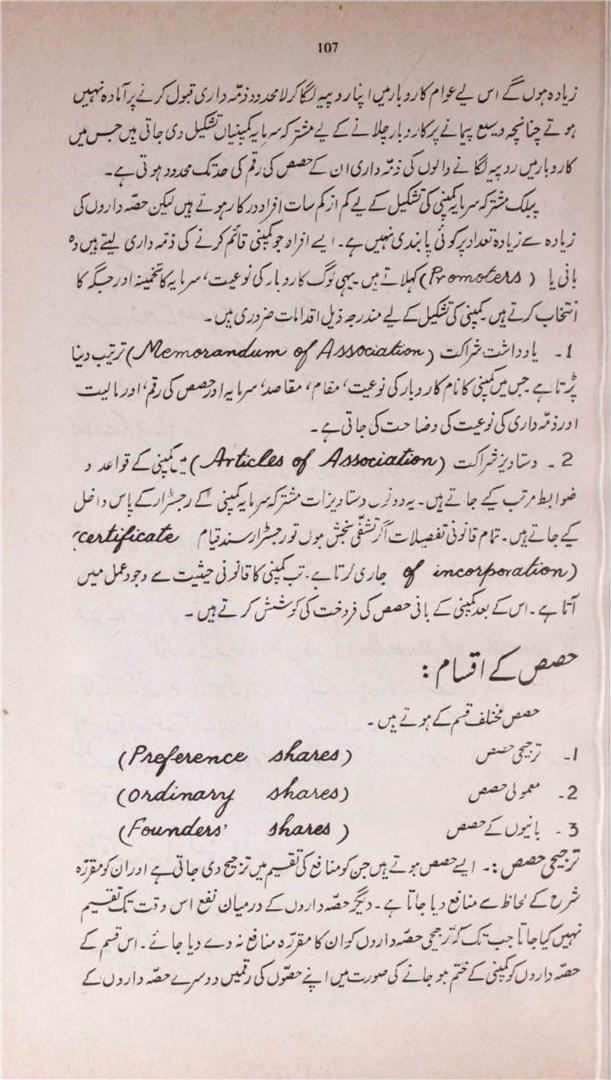 107
زیادہ ہوں گے اس لیے عوام کاروبار میں اپنا روپیہ لگا کر لامحدود ذمّہ داری قبول کرنے پر آمادہ نہیں
ہوتے چنانچہ وسیع پیمانے پر کاروبار چلانے کے لیے مشترکہ سرمایہ کمپنیاں تشکیل دی جاتی ہیں جس میں
کاروبار میں روپیہ لگانے والوں کی ذمّہ داری ان کے حصص کی رقم کی حد تک محدود ہوتی ہے۔
پبلک مشترکہ سرمایہ کمپنی کی تشکیل کے لیے کم از کم سات افراد درکار ہوتے ہیں لیکن حصّہ داروں کی
زیادہ سے زیادہ تعداد پر کوئی پابندی نہیں ہے۔ ایسے افراد جو کمپنی قائم کرنے کی ذمّہ داری لیتے ہیں وہ
بانی یا (Promoters) کہلاتے ہیں۔ یہی لوگ کاروبار کی نوعیت، سرمایہ کا تخمینہ اور جگہ کا
انتخاب کرتے ہیں۔ کمپنی کی تشکیل کے لیے مندرجہ ذیل اقدامات ضروری ہیں۔
1۔ یادداشت شراکت (Memorandum of Association) ترتیب دینا
پڑتا ہے۔ جس میں کمپنی کا نام کاروبار کی نوعیت، مقام، مقاصد، سرمایہ اور حصص کی رقم، اور مالیت
اور ذمّہ داری کی نوعیت کی وضاحت کی جاتی ہے۔
2۔ دستاویز شراکت (Articles of Association) میں کمپنی کے قواعد و
ضوابط مرتب کیے جاتے ہیں۔ یہ دونوں دستاویزات مشترکہ سرمایہ کمپنی کے رجسٹرار کے پاس داخل
کیے جاتے ہیں۔ تمام قانونی تفصیلات اگر تشفّی بخش ہوں تو رجسٹرار سند قیام (certificate
of incorporation) جاری کرتا ہے۔ تب کمپنی کا قانونی حیثیت سے وجود عمل میں
آتا ہے۔ اس کے بعد کمپنی کے بانی حصص کی فروخت کی کوشش کرتے ہیں۔
حصص کے اقسام :
حصص مختلف قسم کے ہوتے ہیں۔
1۔ ترجیحی حصص (Preference shares)
2۔ معمولی حصص (Ordinary shares)
3۔ بانیوں کے حصص (Founders' shares)
ترجیحی حصص :۔ ایسے حصص ہوتے ہیں جن کو منافع کی تقسیم میں ترجیح دی جاتی ہے اور ان کو مقررّہ
شرح کے لحاظ سے منافع دیا جاتا ہے۔ دیگر حصّہ داروں کے درمیان نفع اس وقت تک تقسیم
نہیں کیا جاتا جب تک کہ ترجیحی حصّہ داروں کو ان کا مقررّہ منافع نہ دے دیا جائے۔ اس قسم کے
حصّہ داروں کو کمپنی کے ختم ہو جانے کی صورت میں اپنے حصّوں کی رقمیں دوسرے حصّہ داروں کے